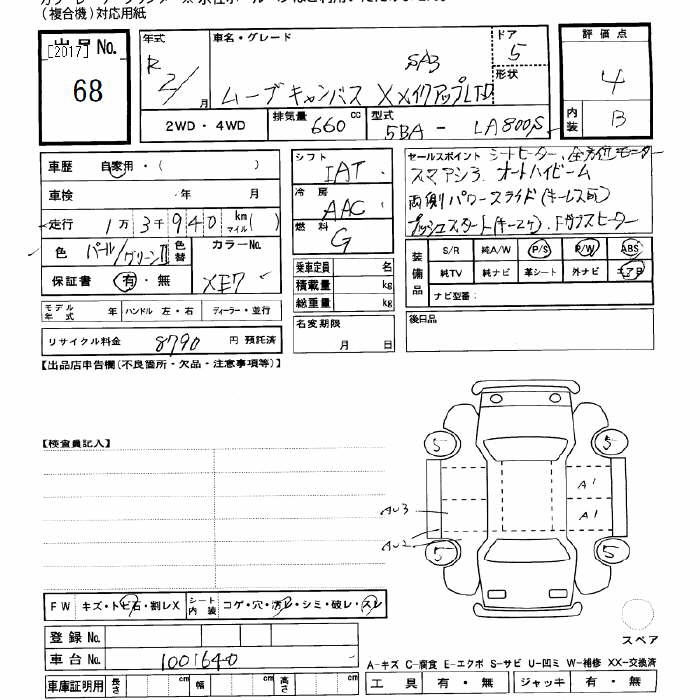 (複合機)対応用紙
出品No.
[2017]
68
年式 車名・グレード ドア 5
R 2/ 月 SA3 形状
ムーブキャンバス XメイクアップLTD
2WD・4WD 排気量 660 cc 型式 5BA - LA800S
評価点
4
内装 B
車歴 自家用・( )
車検 年 月
走行 1万 3千 940 km マイル ( )
色 パール/グリーンⅡ 色替 カラーNo.
保証書 有・無 XE7
モデル年式 年 ハンドル 左・右 ディーラー・並行
リサイクル料金 8790 円 預託済
シフト IAT
冷房 AAC
燃料 G
乗車定員 名
積載量 kg
総重量 kg
名変期限
月 日
セールスポイント シートヒーター、全方位モニター
スマアシ3、オートハイビーム
両側パワースライド(キーレス応)
プッシュスタート(キー2ケ)、ドラレコ
装備品 S/R 純A/W P/S P/W ABS
純TV 純ナビ 革シート 外ナビ エアB
ナビ型番:
後日品
【出品店申告欄(不良箇所・欠品・注意事項等)】
【検査員記入】
5 5
A1
AU3 A1
AU2
5 5
スペア
FW キズ・トビ石・割レX シート内装 コゲ・穴・汚レ・シミ・破レ・スレ
登録No.
車台No. 1001640
車庫証明用 長さ cm 幅 cm 高さ cm
A-キズ C-腐食 E-エクボ S-サビ U-凹ミ W-補修 XX-交換済
工具 有・無 ジャッキ 有・無